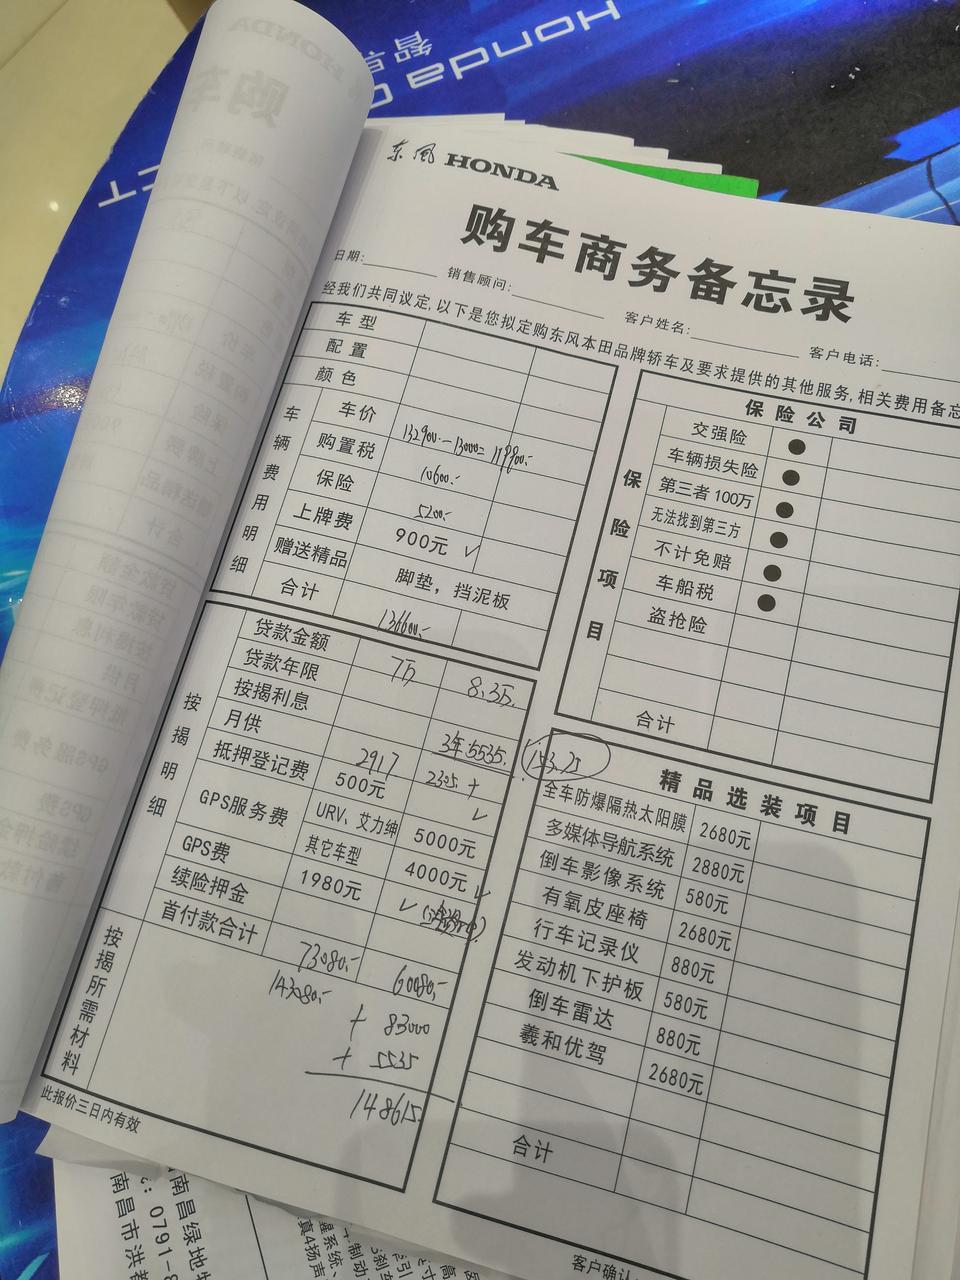 Honda
智
东风 HONDA
购车商务备忘录
日期: 销售顾问: 客户姓名: 客户电话:
经我们共同议定,以下是您拟定购东风本田品牌轿车及要求提供的其他服务,相关费用备忘
车型
配置
颜色
车辆费用明细
车价 132900-13000=119900.-
购置税 10600.-
保险 5200.-
上牌费 900元 ✓
赠送精品 脚垫，挡泥板
合计 136600.-
按揭明细
贷款金额 7万 8.3万.
贷款年限
按揭利息 3年:5535.
月供 2917 2305.+ 153.75
抵押登记费 500元 ✓
GPS服务费 URV、艾力绅 5000元
其它车型 4000元 ✓
GPS费 1980元 ✓
续险押金
首付款合计 73080.- 60080.-
按揭所需材料
143080.-
+ 83000
+ 5535
148615.
此报价三日内有效
保险公司
保险项目
交强险 ●
车辆损失险 ●
第三者100万 ●
无法找到第三方 ●
不计免赔 ●
车船税 ●
盗抢险
合计
精品选装项目
全车防爆隔热太阳膜 2680元
多媒体导航系统 2880元
倒车影像系统 580元
有氧皮座椅 2680元
行车记录仪 880元
发动机下护板 580元
倒车雷达 880元
羲和优驾 2680元
合计
客户确认
南昌绿地
: 0791-8
南昌市洪都